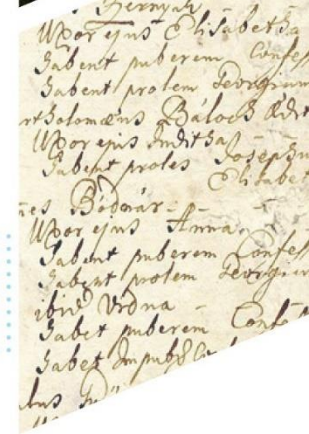 Hernyak
Uxor ejus Elisabetha
Habent puberem Confes
Habent prolem Georgium
rtholomæus Bálock Ædit
Uxor ejus Juditha
Habent proles Josephu
Elisabet
nes Bodnár
Uxor ejus Anna
Habent puberem Confess
Habent prolem Georgiu
ibid Vrdna
Habet puberem Confe
Habet Impub